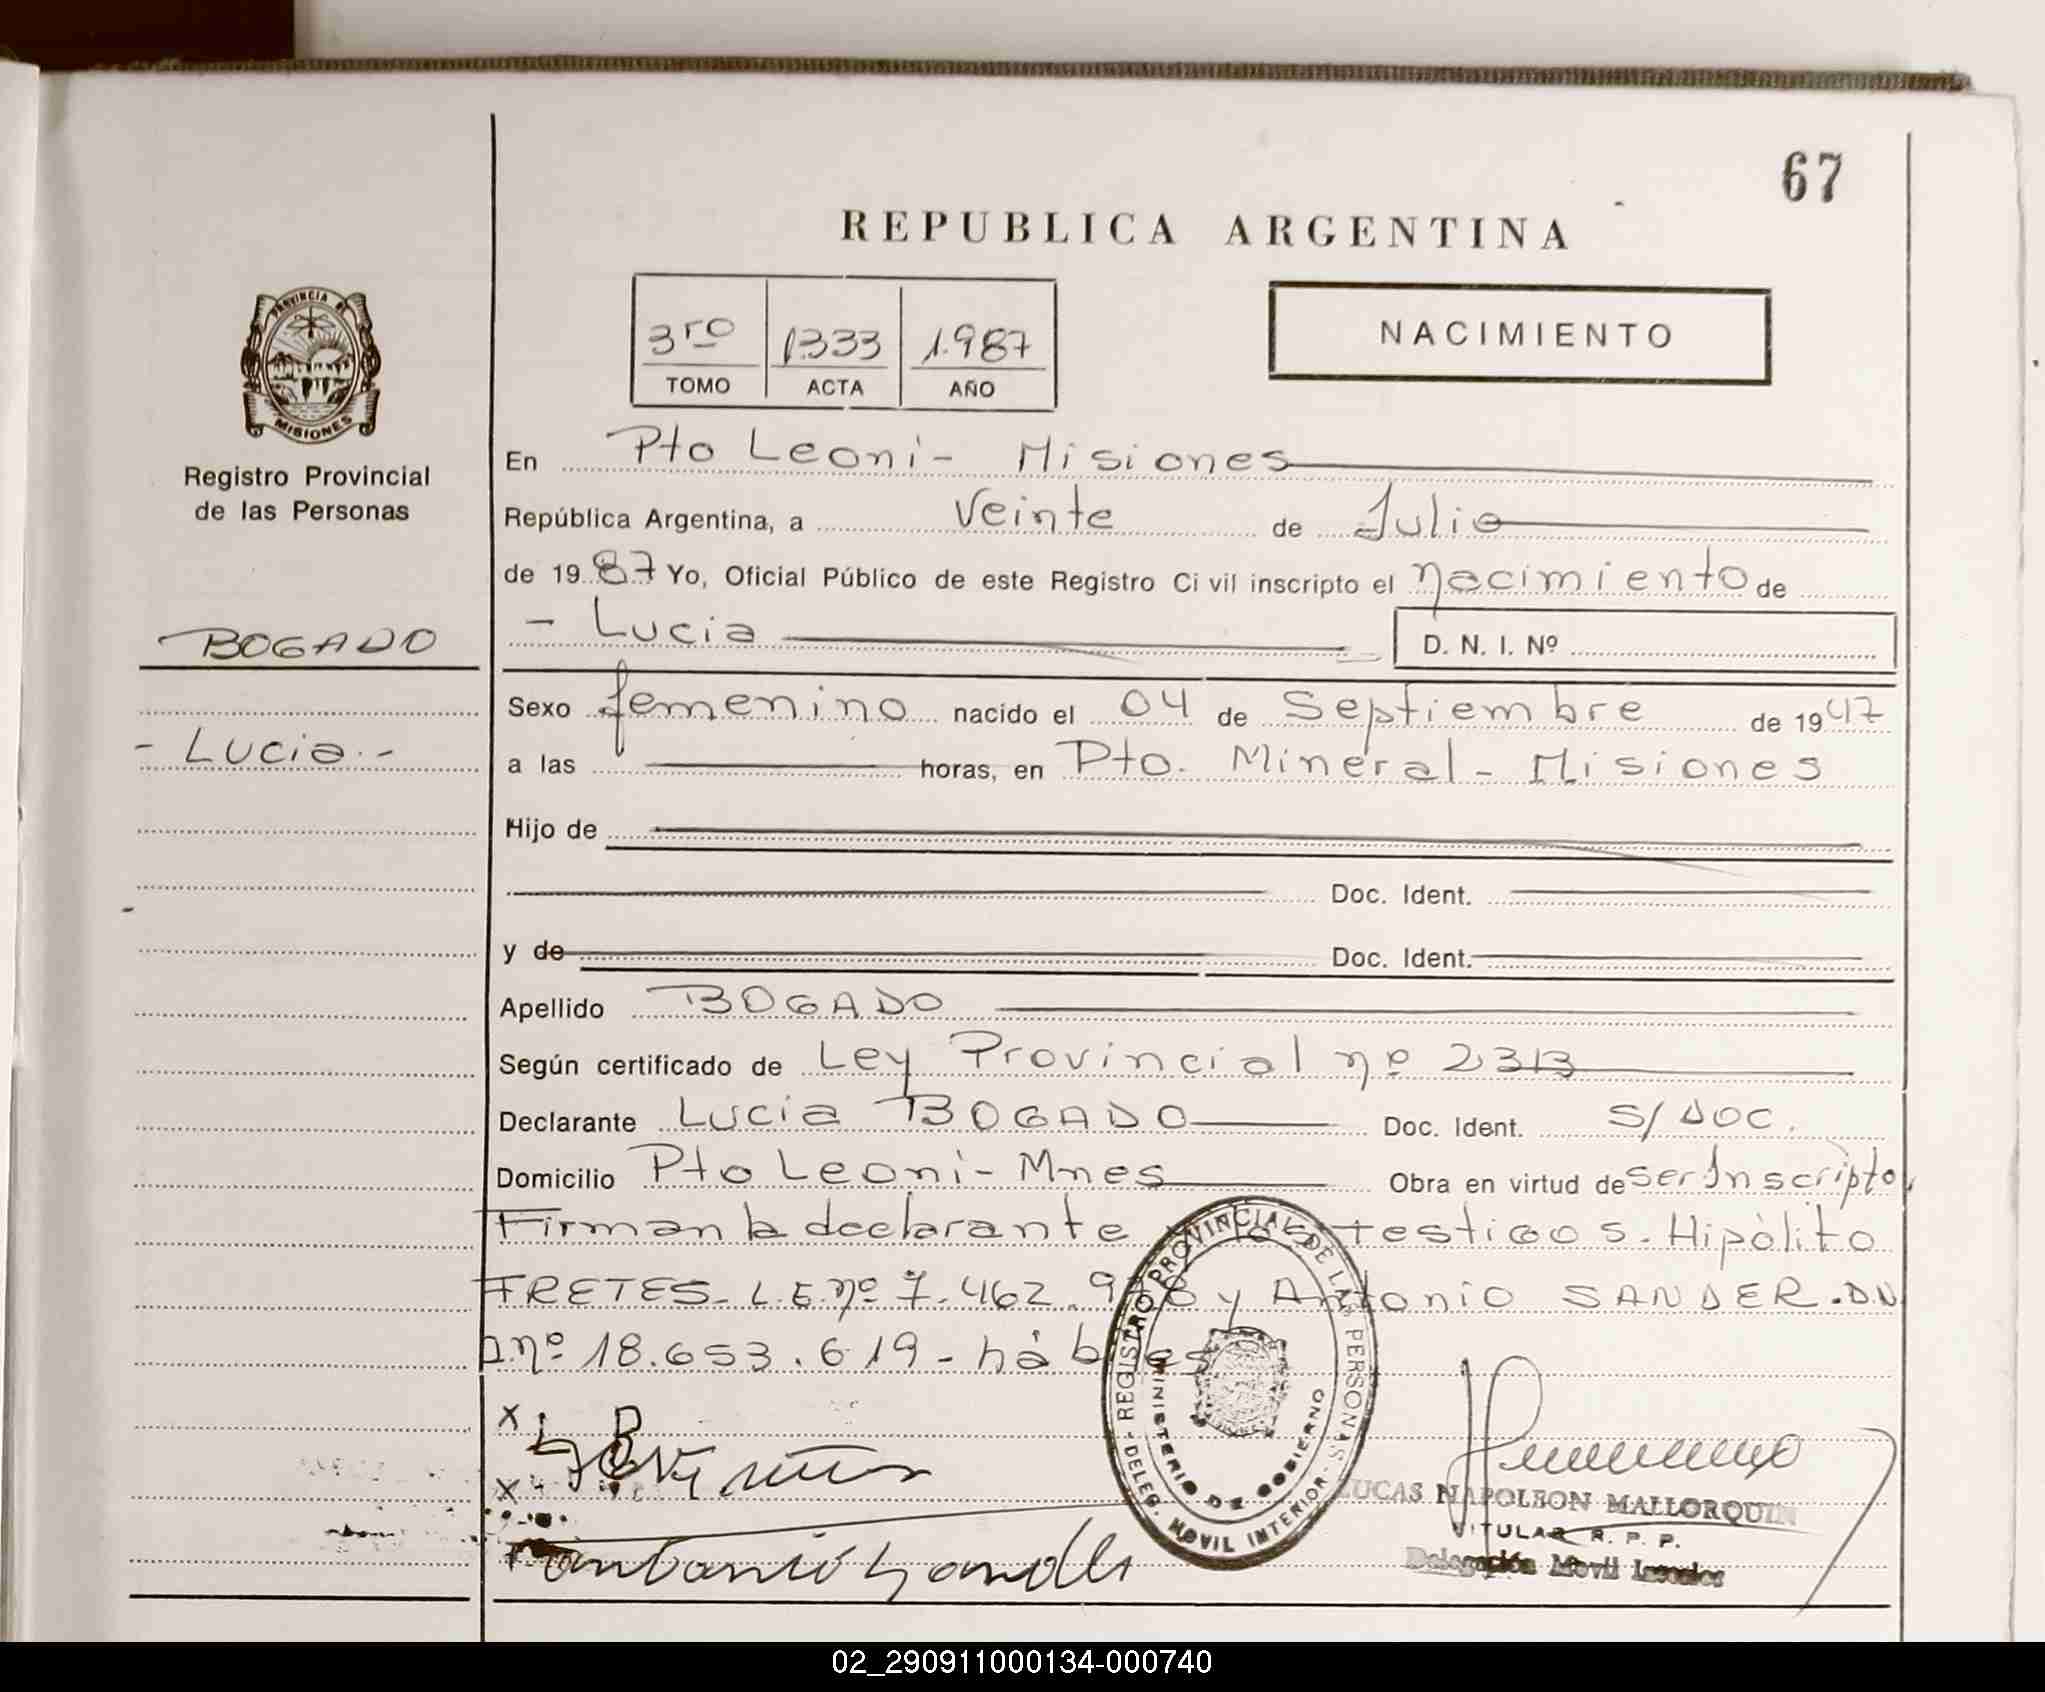 67
REPUBLICA ARGENTINA
3ro 1333 1.987
TOMO ACTA AÑO
NACIMIENTO
PROVINCIA DE
MISIONES
Registro Provincial
de las Personas
BOGADO
- Lucia.-
En Pto Leoni- Misiones
República Argentina, a veinte de Julio
de 1987 Yo, Oficial Público de este Registro Ci vil inscripto el nacimiento de
- Lucia D. N. I. Nº
Sexo femenino nacido el 04 de Septiembre de 1947
a las horas, en Pto. Mineral - Misiones
Hijo de
Doc. Ident.
y de Doc. Ident.
Apellido BOGADO
Según certificado de Ley Provincial nº 2313
Declarante Lucia BOGADO Doc. Ident. S/DOC.
Domicilio Pto Leoni- Mnes Obra en virtud de ser Inscripto,
Firman la declarante y los testigos. Hipólito
FRETES- L.E.nº 7.462.9 8 y Antonio SANDER.DN
I.nº 18.653.619- hábiles
x
x
DELEG. MOVIL INTERIOR - REGISTRO PROVINCIAL DE LAS PERSONAS
MINISTERIO DE GOBIERNO
LUCAS NAPOLEON MALLORQUIN
TITULAR R. P. P.
Delegación Movil Interior
02_290911000134-000740